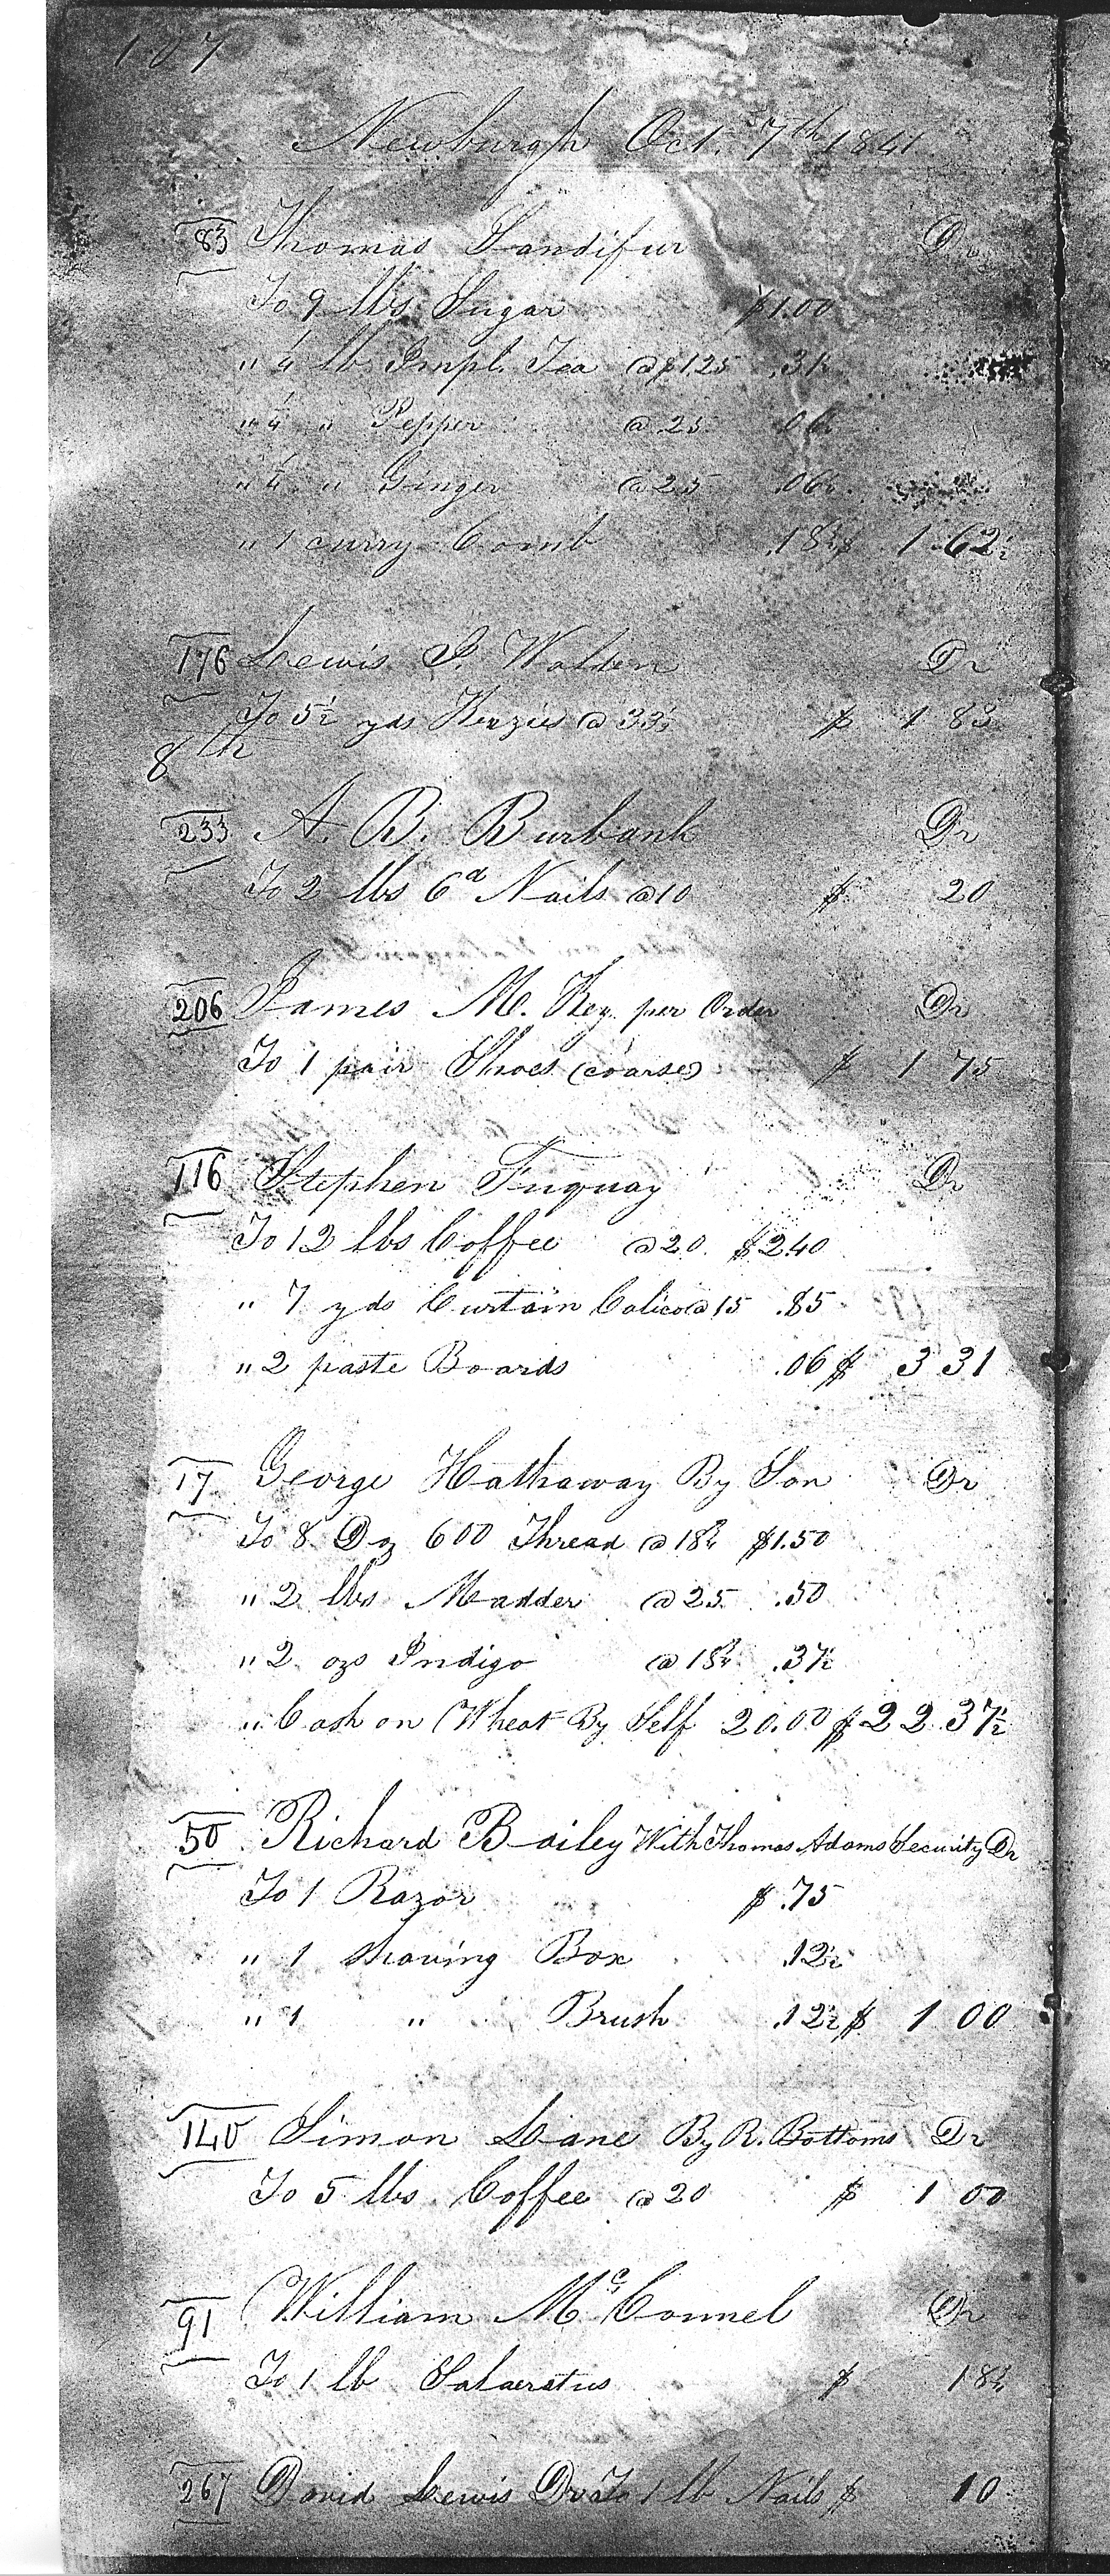 107
Newburgh Oct. 7th 1841
83 Thomas Sandifur Dr
To 9 lbs Sugar $1.00
" ¼ lb Impl. Tea @ $1.25 .31
" ¼ " Pepper @ 25 .06
" ¼ " Ginger @ 25 .06½
" 1 curry Comb .18¾ $ 1.62½
176 Lewis P. Walden Dr
To 5½ yds @ 33⅓ $ 1 83
8th
233 A. B. Burbank Dr
To 2 lbs 6d Nails @ 10 $ 20
206 James M. Key per Order Dr
To 1 pair Shoes (coarse) $ 1 75
116 Stephen Fuquay Dr
To 12 lbs Coffee @ 20 $2.40
" 7 yds Curtain Calico @ 15 .85
" 2 paste Boards .06 $ 3 31
17 George Hathaway By Son Dr
To 8 Doz 600 Thread @ 18¾ $1.50
" 2 lbs Madder @ 25 .50
" 2 ozs Indigo @ 18¾ .37½
" Cash on Wheat By Self 20.00 $ 22 37½
50 Richard Bailey With Thomas Adams Security Dr
To 1 Razor $ .75
" 1 Shaving Box .12½
" 1 " Brush .12½ $ 1 00
140 Simon Lane By R. Bottoms Dr
To 5 lbs Coffee @ 20 $ 1 00
91 William McConnel Dr
To 1 lb Salaeratus $ 18¾
267 David Lewis Dr To 1 lb Nails $ 10